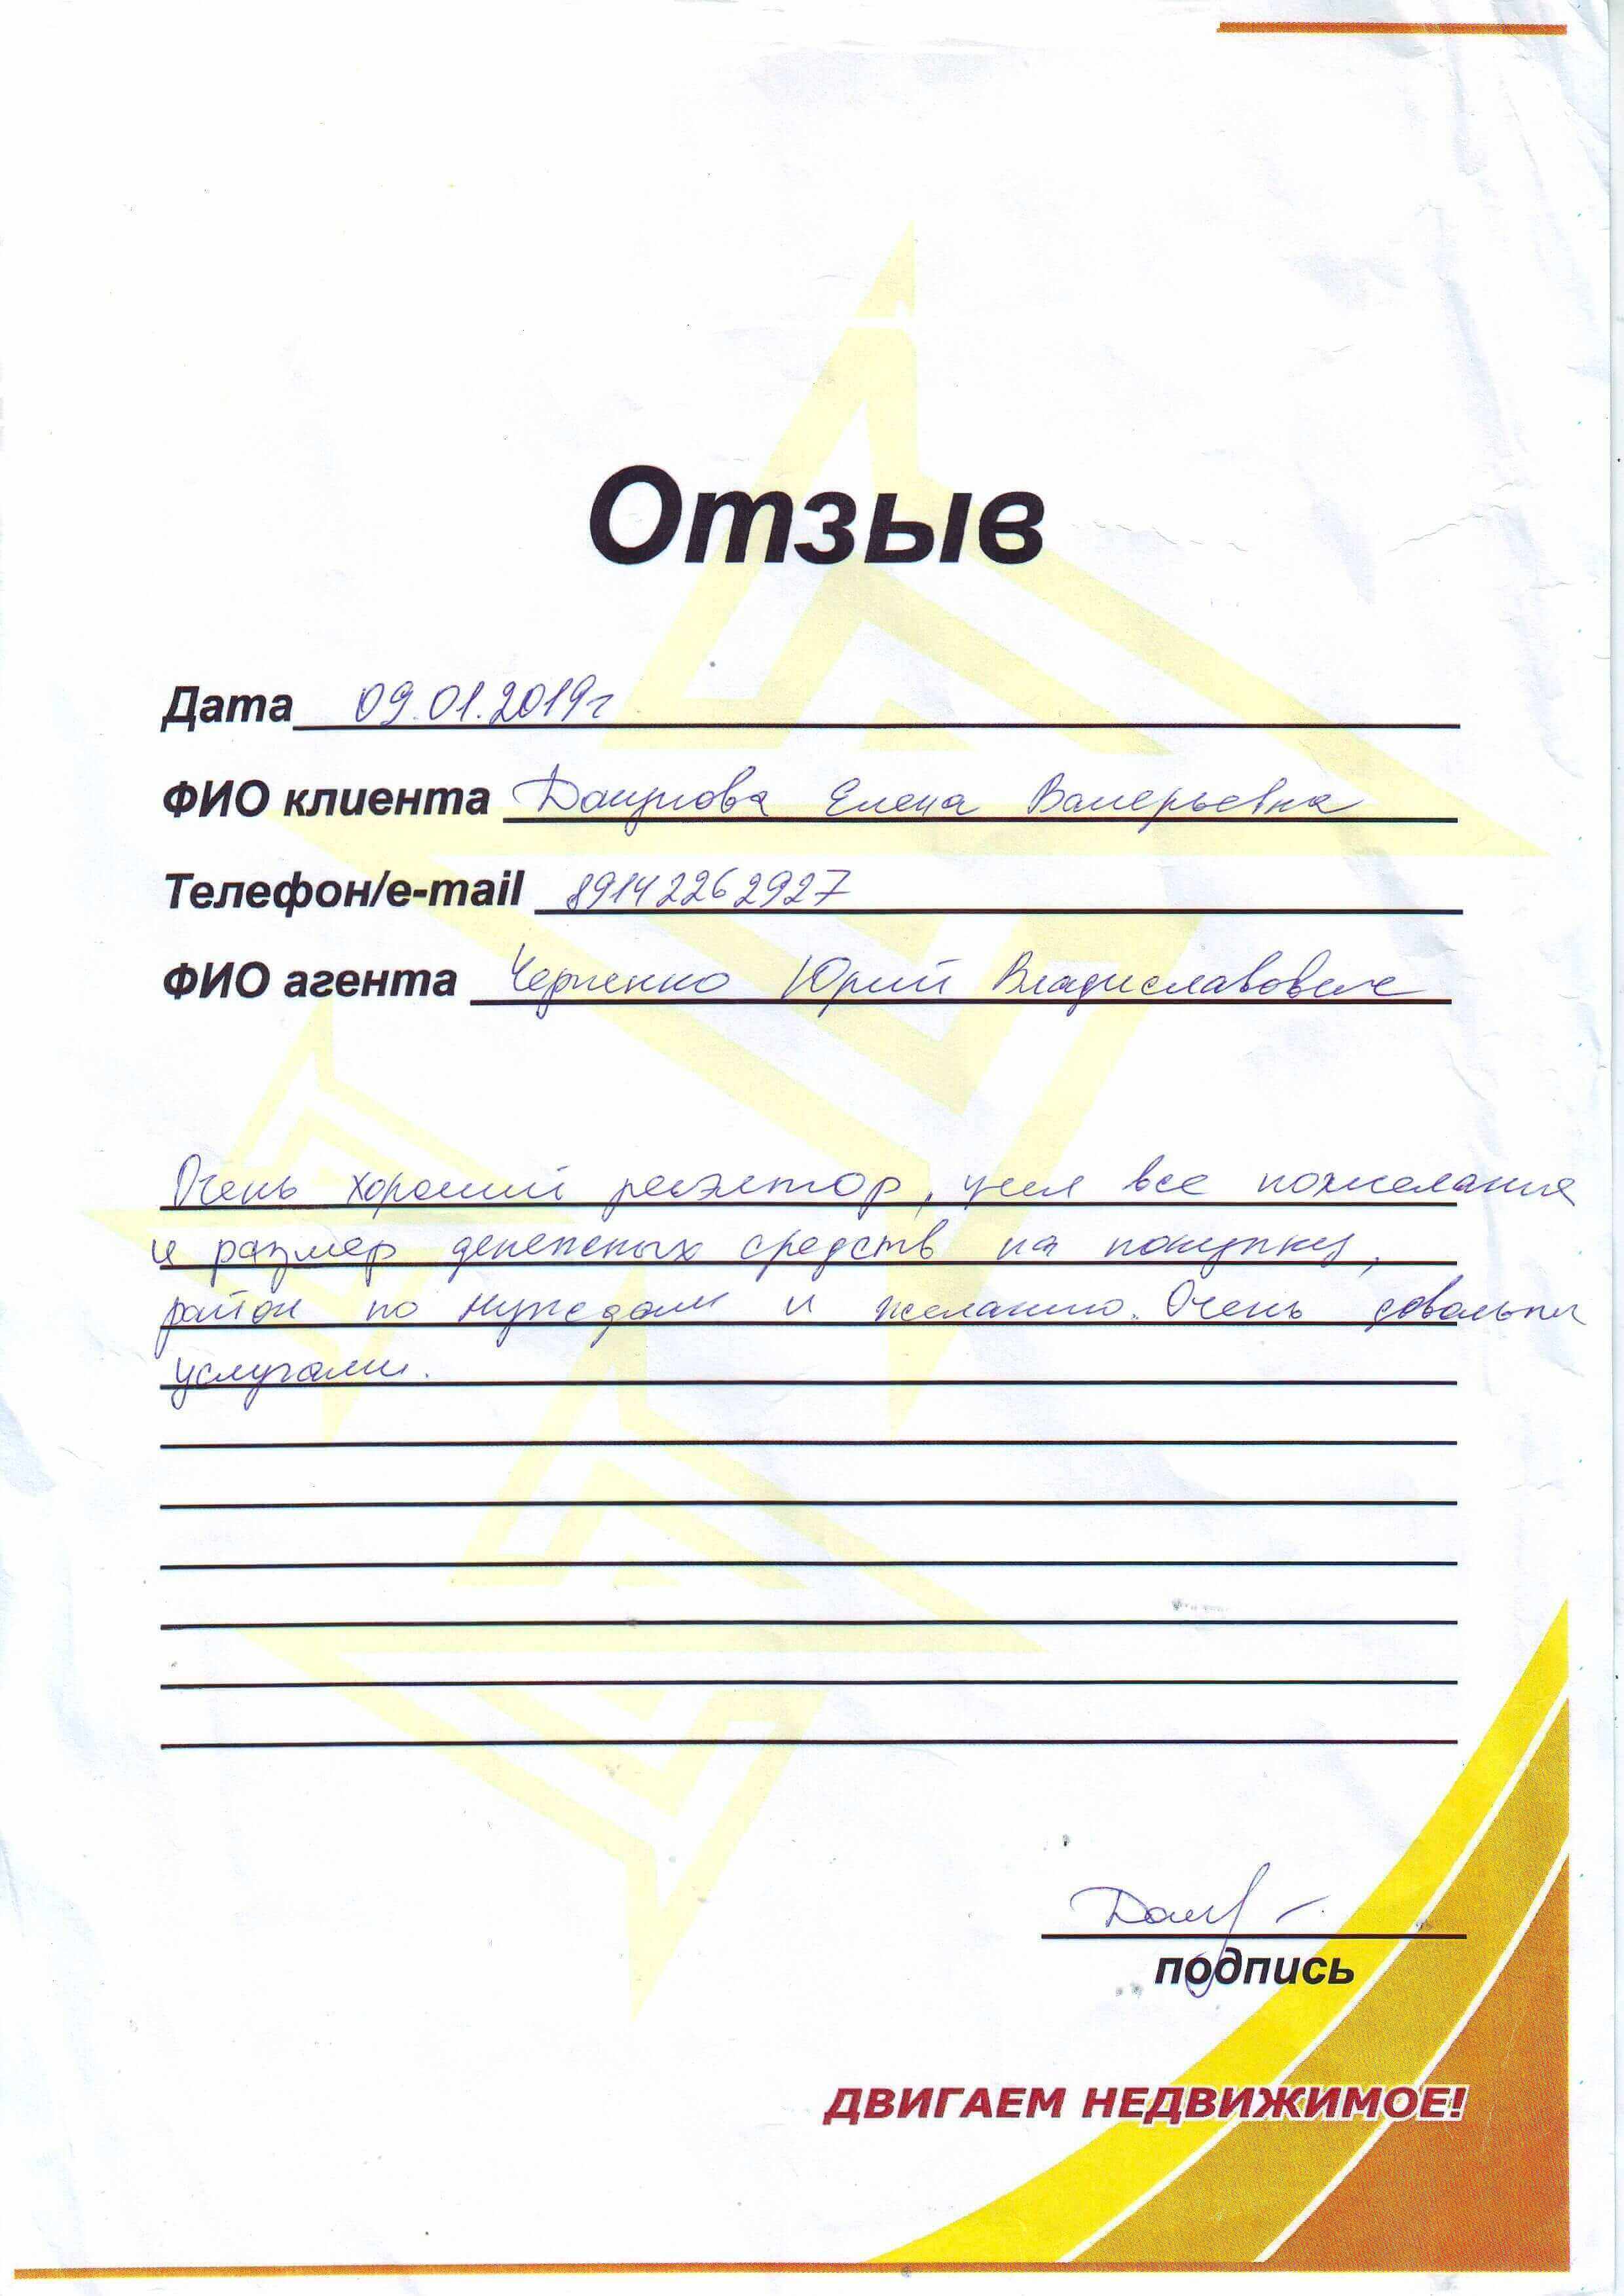 Отзыв
Дата 09.01.2019г
ФИО клиента Елена Валерьевна
Телефон/e-mail 89142262927
ФИО агента Черненко Юрий Владиславович
Очень хороший реэлтор, учел все пожелания
и размер денежных средств на покупку,
район по нуждам и желанию. Очень довольны
услугами.
подпись
ДВИГАЕМ НЕДВИЖИМОЕ!